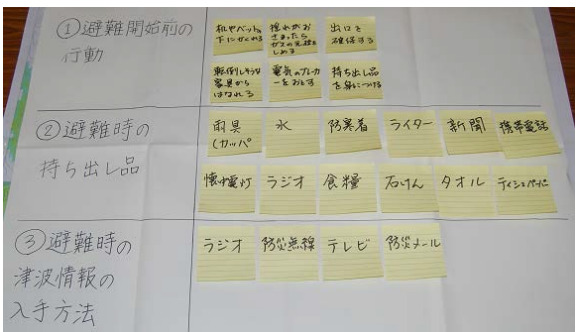 ①避難開始前の
行動
机やベットの
下にかくれる
揺れがお
さまったら
ガスの元栓を
しめる
出口を
確保する
転倒しそうな
家具から
はなれる
電気のブレーカ
ーをおとす
持ち出し品
を身につける
②避難時の
持ち出し品
雨具
(カッパ
水
防寒着
ライター
新聞
携帯電話
懐中電灯
ラジオ
食糧
石けん
タオル
ティシュペーパー
③避難時の
津波情報の
入手方法
ラジオ
防災無線
テレビ
防災メール